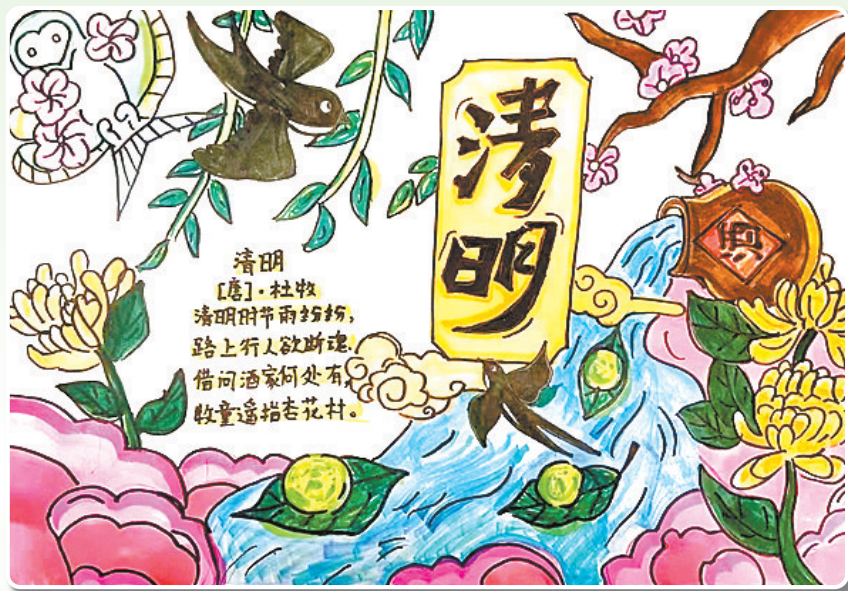 清明
清明
[唐]·杜牧
清明时节雨纷纷，
路上行人欲断魂.
借问酒家何处有，
牧童遥指杏花村。
酒